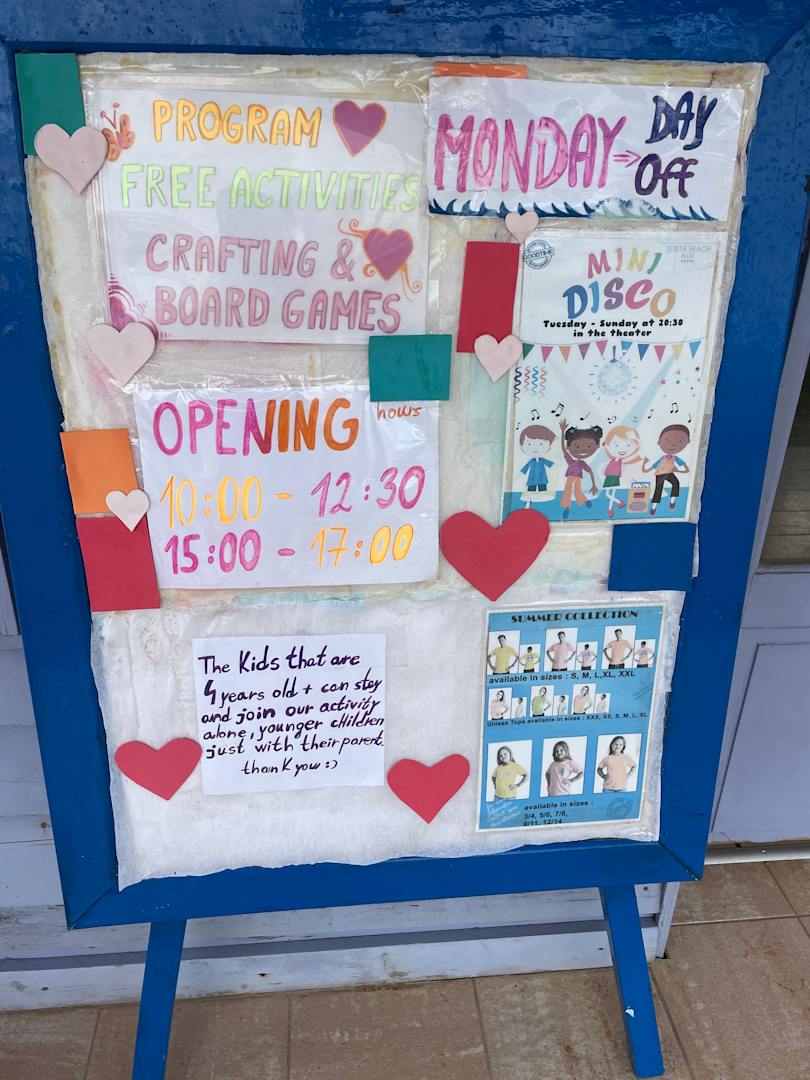 PROGRAM
FREE ACTIVITIES
CRAFTING &
BOARD GAMES
MONDAY → DAY
OFF
GOODTIME
BEACH
MINI
DISCO
Tuesday - Sunday at 20:30
in the theater
OPENING hours
10:00 - 12:30
15:00 - 17:00
The Kids that are
4 years old + can stay
and join our activity
alone, younger children
just with their parent.
thank you :)
SUMMER COLLECTION
available in sizes : S, M, L,XL, XXL
Unisex Tops available in sizes : XXS, XS, S, M, L, XL
available in sizes :
3/4, 5/6, 7/8,
9/11, 12/14